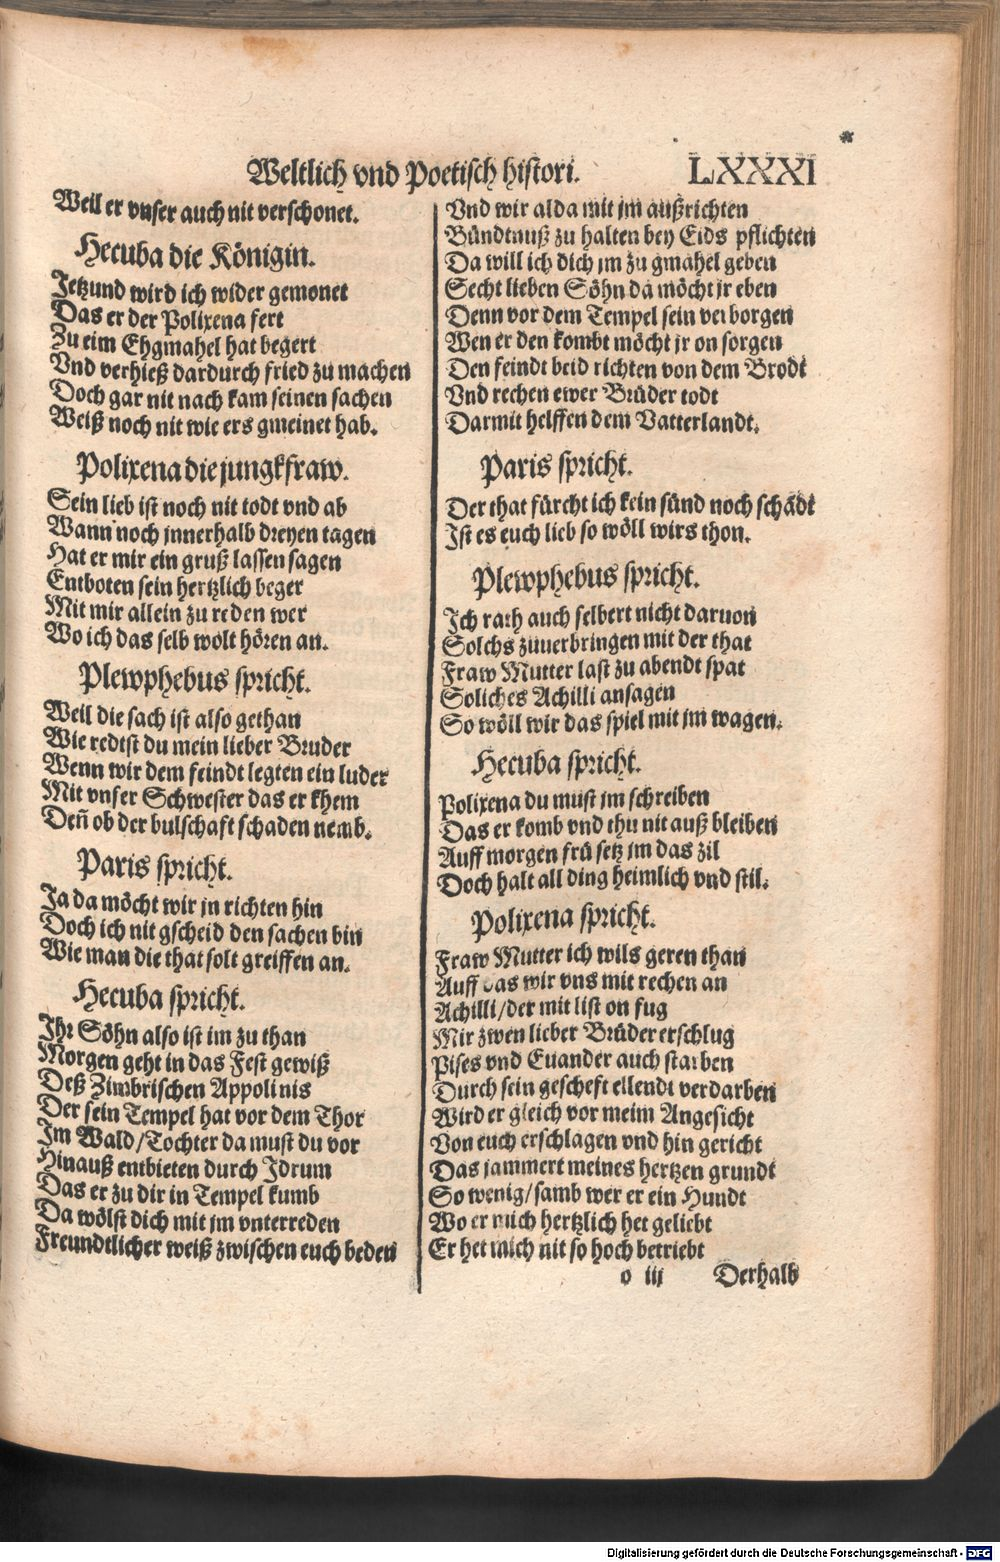 Weltlich vnd Poetisch histori. LXXXI
Weil er vnser auch nit verschonet.
Hecuba die Königin.
Jetzund wird ich wider gemonet
Das er der Polixena fert
Zu eim Ehgmahel hat begert
Vnd verhieß dardurch fried zu machen
Doch gar nit nach kam seinen sachen
Weiß noch nit wie ers gmeinet hab.
Polixena die jungkfraw.
Sein lieb ist noch nit todt vnd ab
Wann noch jnnerhalb dreyen tagen
Hat er mir ein gruß lassen sagen
Entboten sein hertzlich beger
Mit mir allein zu reden wer
Wo ich das selb wolt hören an.
Plewphebus spricht.
Weil die sach ist also gethan
Wie redtst du mein lieber Bruder
Wenn wir dem feindt legten ein luder
Mit vnser Schwester das er khem
Deñ ob der bulschafft schaden nemb.
Paris spricht.
Ja da möcht wir jn richten hin
Doch ich nit gscheid den sachen bin
Wie man die that solt greiffen an.
Hecuba spricht.
Ihr Söhn also ist im zu than
Morgen geht in das Fest gewiß
Deß Zimbrischen Appolinis
Der sein Tempel hat vor dem Thor
Im Wald/Tochter da must du vor
Hinauß entbieten durch Idrum
Das er zu dir in Tempel kumb
Da wölst dich mit jm vnterreden
Freundtlicher weiß zwischen euch beden
Vnd wir alda mit jm außrichten
Bündtnuß zu halten bey Eids pflichten
Da will ich dich jm zu gmahel geben
Secht lieben Söhn da möcht jr eben
Denn vor dem Tempel sein verborgen
Wen er den kombt möcht jr on sorgen
Den feindt beid richten von dem Brodt
Vnd rechen ewer Brüder todt
Darmit helffen dem Vatterlandt.
Paris spricht.
Der that fürcht ich kein sünd noch schädt
Ist es euch lieb so wöll wirs thon.
Plewphebus spricht.
Ich rath auch selbert nicht daruon
Solchs zuuerbringen mit der that
Fraw Mutter last zu abendt spat
Soliches Achilli ansagen
So wöll wir das spiel mit jm wagen.
Hecuba spricht.
Polixena du must jm schreiben
Das er komb vnd thu nit auß bleiben
Auff morgen frü setz jm das zil
Doch halt all ding heimlich vnd stil.
Polixena spricht.
Fraw Mutter ich wils geren than
Auff das wir vns mit rechen an
Achilli/der mit list on fug
Mir zwen lieber Brüder erschlug
Pises vnd Euander auch starben
Durch sein gescheft ellendt verdarben
Wird er gleich vor meim Angesicht
Von euch erschlagen vnd hin gericht
Das jammert meines hertzen grundt
So wenig/samb wer er ein Hundt
Wo er mich hertzlich het geliebt
Er het mich nit so hoch betriebt
o iii Derhalb
Digitalisierung gefördert durch die Deutsche Forschungsgemeinschaft - DFG